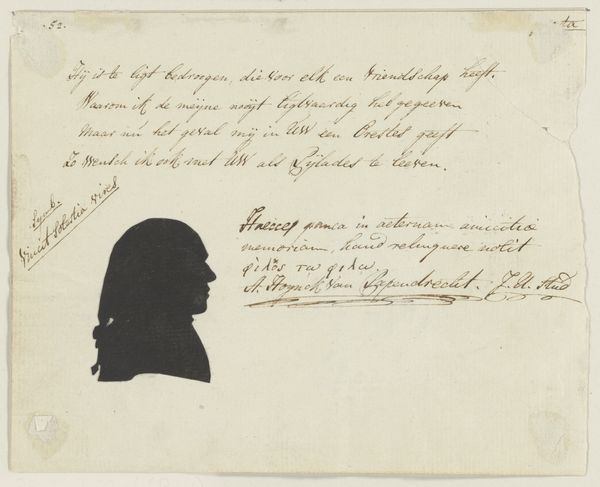 52.
Hij is te ligt bedroogen, die voor elk een vriendschap heeft.
Waarom ik de mijne nooijt ligtvaardig heb gegeeven
Maar nu het geval mij in UW een Orestes geeft
Zo wensch ik ook met UW als Pijlades te leeven.
Symb.
Vincit Solertia vires
pauca in aeternam amicitiae
memoriam, haud relinquere nolit
φιλος τω φιλω.
A. Hoynck van Papendrecht. J. U. Stud